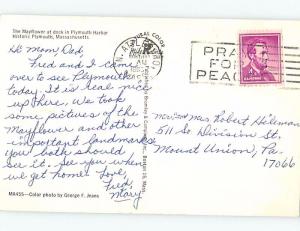 The Mayflower at dock in Plymouth Harbor
Historic Plymouth, Massachusetts
Hi Mom, Dad,
Fred and I came
over to see Plymouth
today. It is real nice
up here, we took
some pictures of the
Mayflower and other
important landmarks
you both should
see it. See you when
we get home. Love,
Fred,
Mary
MA455—Color photo by George F. Jeans
PRAY
FOR
PEACE
Mr. and Mrs. Robert Hileman
511 So. Division St.
Mount Union, Pa.
17066